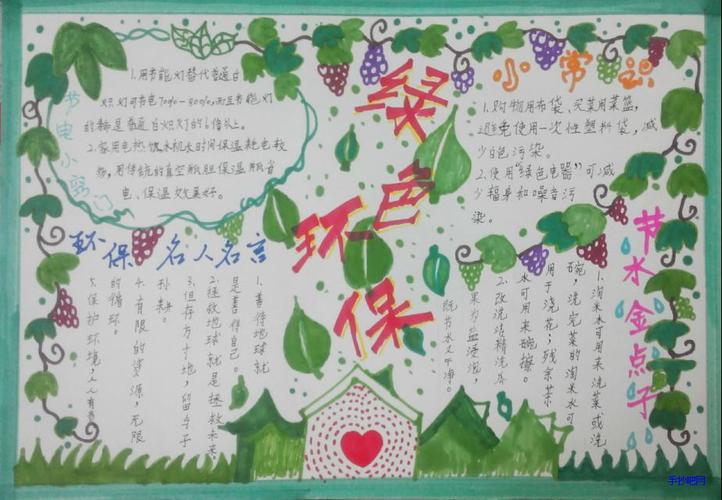 节电小窍门
1.用节能灯替代普通白
炽灯可节电70%-80%,而且节能灯
的寿命是普通白炽灯的6倍以上。
2.家用电热饮水机长时间保温耗电较
多,用传统的真空瓶胆保温瓶省
电、保温效果好。
绿色环保
小常识
1.购物用布袋、买菜用菜篮,
避免使用一次性塑料袋,减
少白色污染。
2.使用“绿色电器”可减
少辐身和噪音污
染。
环保名人名言
1.善待地球就
是善待自己。
2.拯救地球就是拯救未来。
3.但存方寸地,留与子
孙耕。
4.有限的资源,无限
的循环。
5.保护环境,人人有责
节水金点子
1.淘米水可用来洗菜或洗
碗,洗完菜的淘米水可
用于浇花;残余茶
水可用来碗擦。
2.改洗洁精洗
果为盐浸泡,
既节水又干净。
手抄吧网